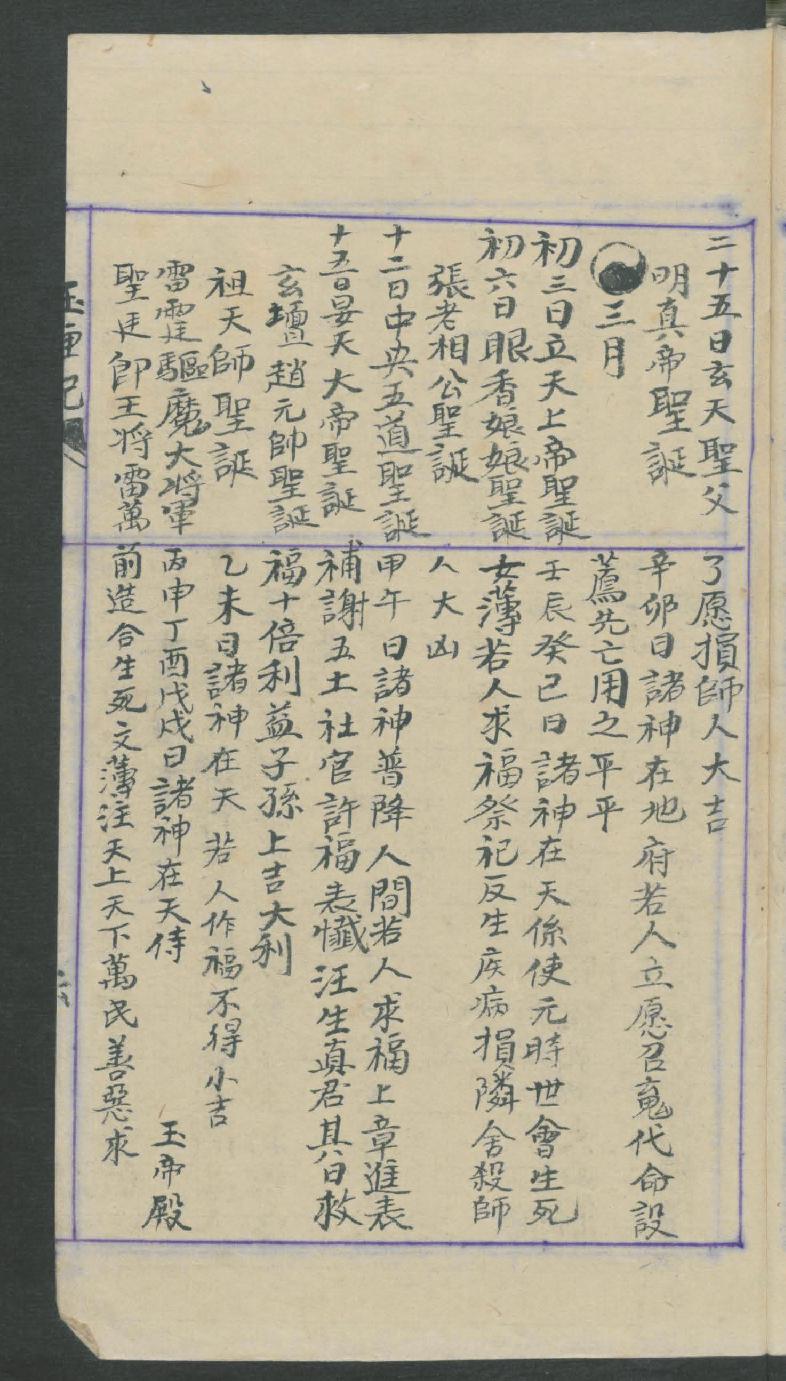 二十五日玄天聖父
明真帝聖誕
三月
初三日立天上帝聖誕
初六日眼香娘娘聖誕
張老相公聖誕
十二日中央五道聖誕
十五日昊天大帝聖誕
玄壇趙元帥聖誕
祖天師聖誕
雷霆驅魔大將軍
聖廷即王將雷萬
了愿損師人大吉
辛卯日諸神在地府若人立愿召冤代命設
薦先亡用之平平
壬辰癸巳日諸神在天係使元時世會生死
女薄若人求福祭祀反生疾病損隣舍殺師
人大凶
甲午日諸神普降人間若人求福上章進表
補謝五土社官許福表懺汪生真君其日救
福十倍利益子孫上吉大利
乙未日諸神在天若人作福不得小吉
丙申丁酉戊戌日諸神在天侍玉帝殿
前造合生死文薄注天上天下萬民善惡求
玉匣記